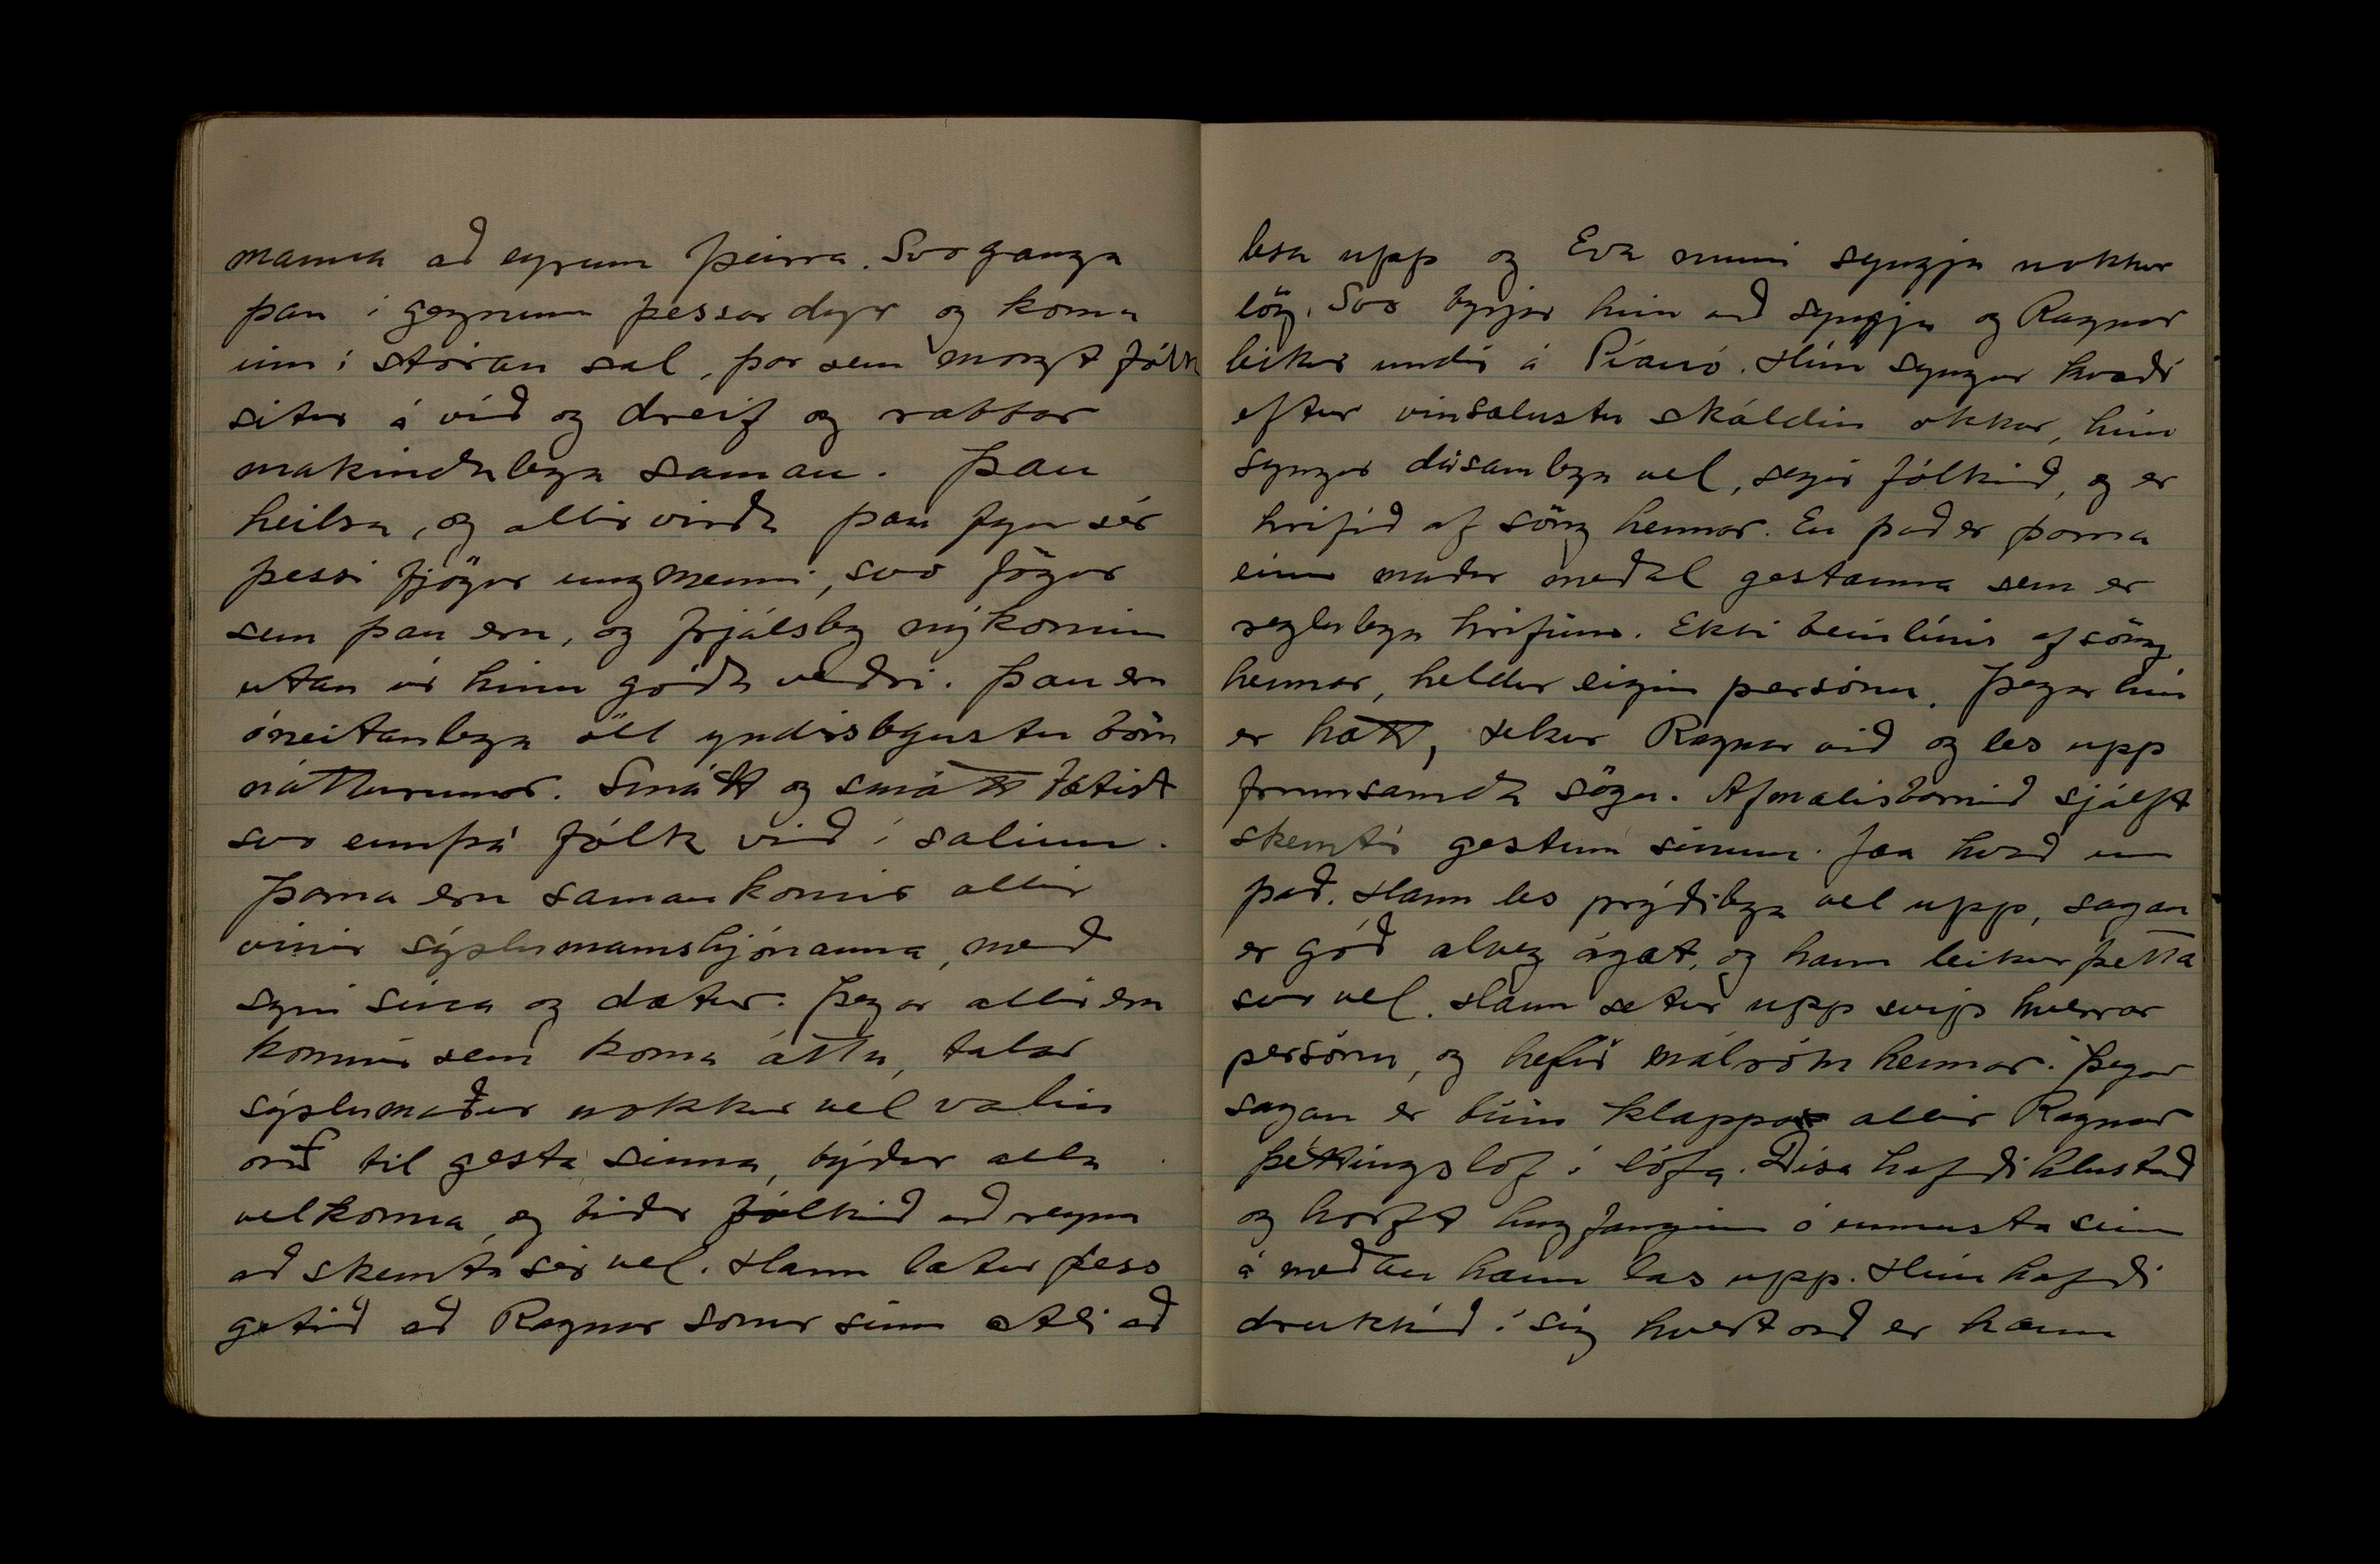 manna að eyrum þeirra. Svo ganga
þau í gegnum þessar dyr og koma
inn í stóran sal, þar sem margt fólk
situr á víð og dreif og rabbar
makindalega saman. Þau
heilsa, og allir virða þau fyrir sér
þessi fjögur ungmenni, svo fögur
sem þau eru, og frjálsleg nýkomin
utan úr hinu góða veðri. Þau eru
óneitanlega öll yndislegustu börn
náttúrunnar. Smátt og smátt bætist
svo ennþá fólk við í salinn.
Þarna eru saman komnir allir
vinir sýslumannshjónanna, með
syni sína og dætur. Þegar allir eru
komnir sem koma áttu, talar
sýslumaður nokkur vel valin
orð til gesta sinna, býður alla
velkomna, og biður fólkið að reyna
að skemta sér vel. Hann lætur þess
getið að Ragnar sonur sinn ætli að
lesa upp og Eva muni syngja nokkur
lög. Svo byrjar hún að syngja og Ragnar
leikur undir á Píanó. Hún syngur kvæði
eftir vinsælustu skáldin okkar, hún
syngur dásamlega vel, segir fólkið, og er
hrifið af söng hennar. En það er þarna
einn maður meðal gestanna sem er
reglulega hrifinn. Ekki beinlínis af söng
hennar, heldur eigin persónu. Þegar hún
er hætt, tekur Ragnar við og les upp
frumsamda sögu. Afmælisbarnið sjálft
skemtir gestum sínum. Jæa hvað um
það. Hann les prýðilega vel upp, sagan
er góð alveg ágæt, og hann leikur þetta
svo vel. Hann setur upp svip hverrar
persónu, og hefir málróm hennar. Þegar
sagan er búin klappa allir Ragnar
þéttings lof í lófa. Dísa hafði hlustað
og horft hugfangin á unnusta sinn
á meðan hann las upp. Hún hafði
drukkið í sig hvert orð er hann